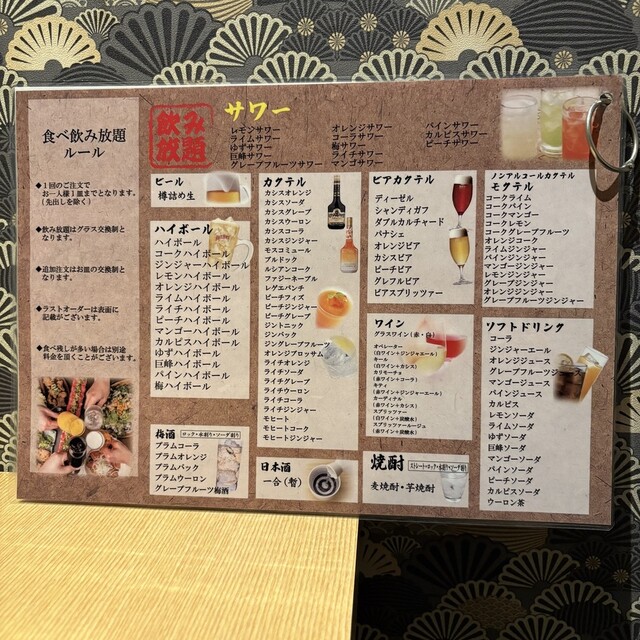 食べ飲み放題
ルール
◆1回のご注文で
お一人様1皿までとなります。
(先出しを除く)
◆飲み放題はグラス交換制と
なります。
◆追加注文はお皿の交換と
なります。
◆ラストオーダーは表面に
記載がございます。
◆食べ残しが多い場合は別途
料金を頂くことがございます。
飲み
放題
サワー
レモンサワー
ライムサワー
ゆずサワー
巨峰サワー
グレープフルーツサワー
オレンジサワー
コーラサワー
梅サワー
ライチサワー
マンゴサワー
パインサワー
カルピスサワー
ピーチサワー
ビール
樽詰め生
ハイボール
ハイボール
コークハイボール
ジンジャーハイボール
レモンハイボール
オレンジハイボール
ライムハイボール
ライチハイボール
ピーチハイボール
マンゴーハイボール
カルピスハイボール
ゆずハイボール
巨峰ハイボール
パインハイボール
梅ハイボール
梅酒
ロック・水割り・ソーダ割り
プラムコーラ
プラムオレンジ
プラムバック
プラムウーロン
グレープフルーツ梅酒
カクテル
カシスオレンジ
カシスソーダ
カシスグレープ
カシスウーロン
カシスコーラ
カシスジンジャー
モスコミュール
ブルドック
ルシアンコーク
ファジーネーブル
レゲエパンチ
ピーチフィズ
ピーチジンジャー
ピーチグレープ
ジントニック
ジンバック
ジングレープフルーツ
オレンジブロッサム
ライチオレンジ
ライチソーダ
ライチグレープ
ライチウーロン
ライチコーラ
ライチジンジャー
モヒート
モヒートコーク
モヒートジンジャー
日本酒
一合(暫)
ビアカクテル
ディーゼル
シャンディガフ
ダブルカルチャード
パナシェ
オレンジビア
カシスビア
ピーチビア
グレフルビア
ビアスプリッツァー
ワイン
グラスワイン(赤・白)
オペレーター
(白ワイン+ジンジャエール)
キール
(白ワイン+カシス)
カリモーチョ
(赤ワイン+コーラ)
キティ
(赤ワイン+ジンジャエール)
カーディナル
(赤ワイン+カシス)
スプリッツァー
(白ワイン+炭酸水)
スプリッツァールージュ
(赤ワイン+炭酸水)
焼酎
ストレート・ロック・水割り・ソーダ割り
麦焼酎・芋焼酎
ノンアルコールカクテル
モクテル
コークライム
コークパイン
コークマンゴー
コークレモン
コークグレープフルーツ
オレンジコーク
ライムジンジャー
パインジンジャー
マンゴージンジャー
レモンジンジャー
ピーチジンジャー
オレンジジンジャー
グレープフルーツジンジャー
ソフトドリンク
コーラ
ジンジャーエール
オレンジジュース
グレープフルーツジ
マンゴージュース
パインジュース
カルピス
レモンソーダ
ライムソーダ
ゆずソーダ
巨峰ソーダ
マンゴーソーダ
パインソーダ
ピーチソーダ
カルピスソーダ
ウーロン茶